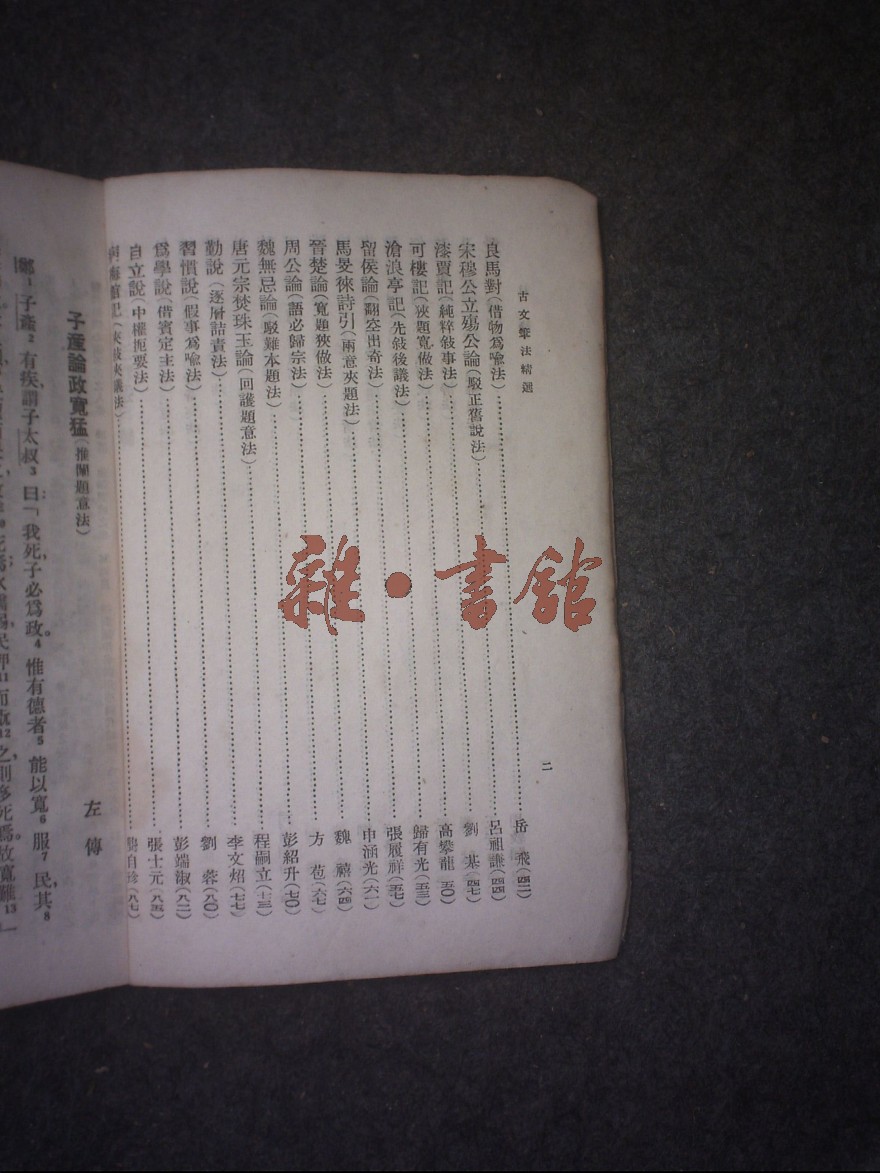 古文筆法精選　二
良馬對(借物爲喩法)……岳　飛(四二)
宋穆公立殤公論(駁正舊說法)……呂祖謙(四四)
漆賈記(純粹敍事法)……劉　基(四七)
可樓記(狹題寬做法)……高攀龍(五〇)
滄浪亭記(先敍後議法)……歸有光(五三)
留侯論(翻空出奇法)……張履祥(五七)
馬旻徠詩引(兩意夾題法)……申涵光(六一)
晉楚論(寬題狹做法)……魏　禧(六四)
周公論(語必歸宗法)……方　苞(六七)
魏無忌論(駁難本題法)……彭紹升(七〇)
唐元宗焚珠玉論(回護題意法)……程嗣立(七三)
勤說(逐層詰責法)……李文炤(七七)
習慣說(假事爲喩法)……劉　蓉(八〇)
爲學說(借賓定主法)……彭端淑(八二)
自立說(中權扼要法)……張士元(八五)
病梅館記(夾敍夾議法)……龔自珍(八七)
左　傳
子產論政寬猛(推闡題意法)
鄭1子產2有疾，謂子太叔3曰「我死，子必爲政。4惟有德者5能以寬6服7民，其8
水懦弱，民狎11而翫12之，則多死焉，故寬難。13」
雜·書館